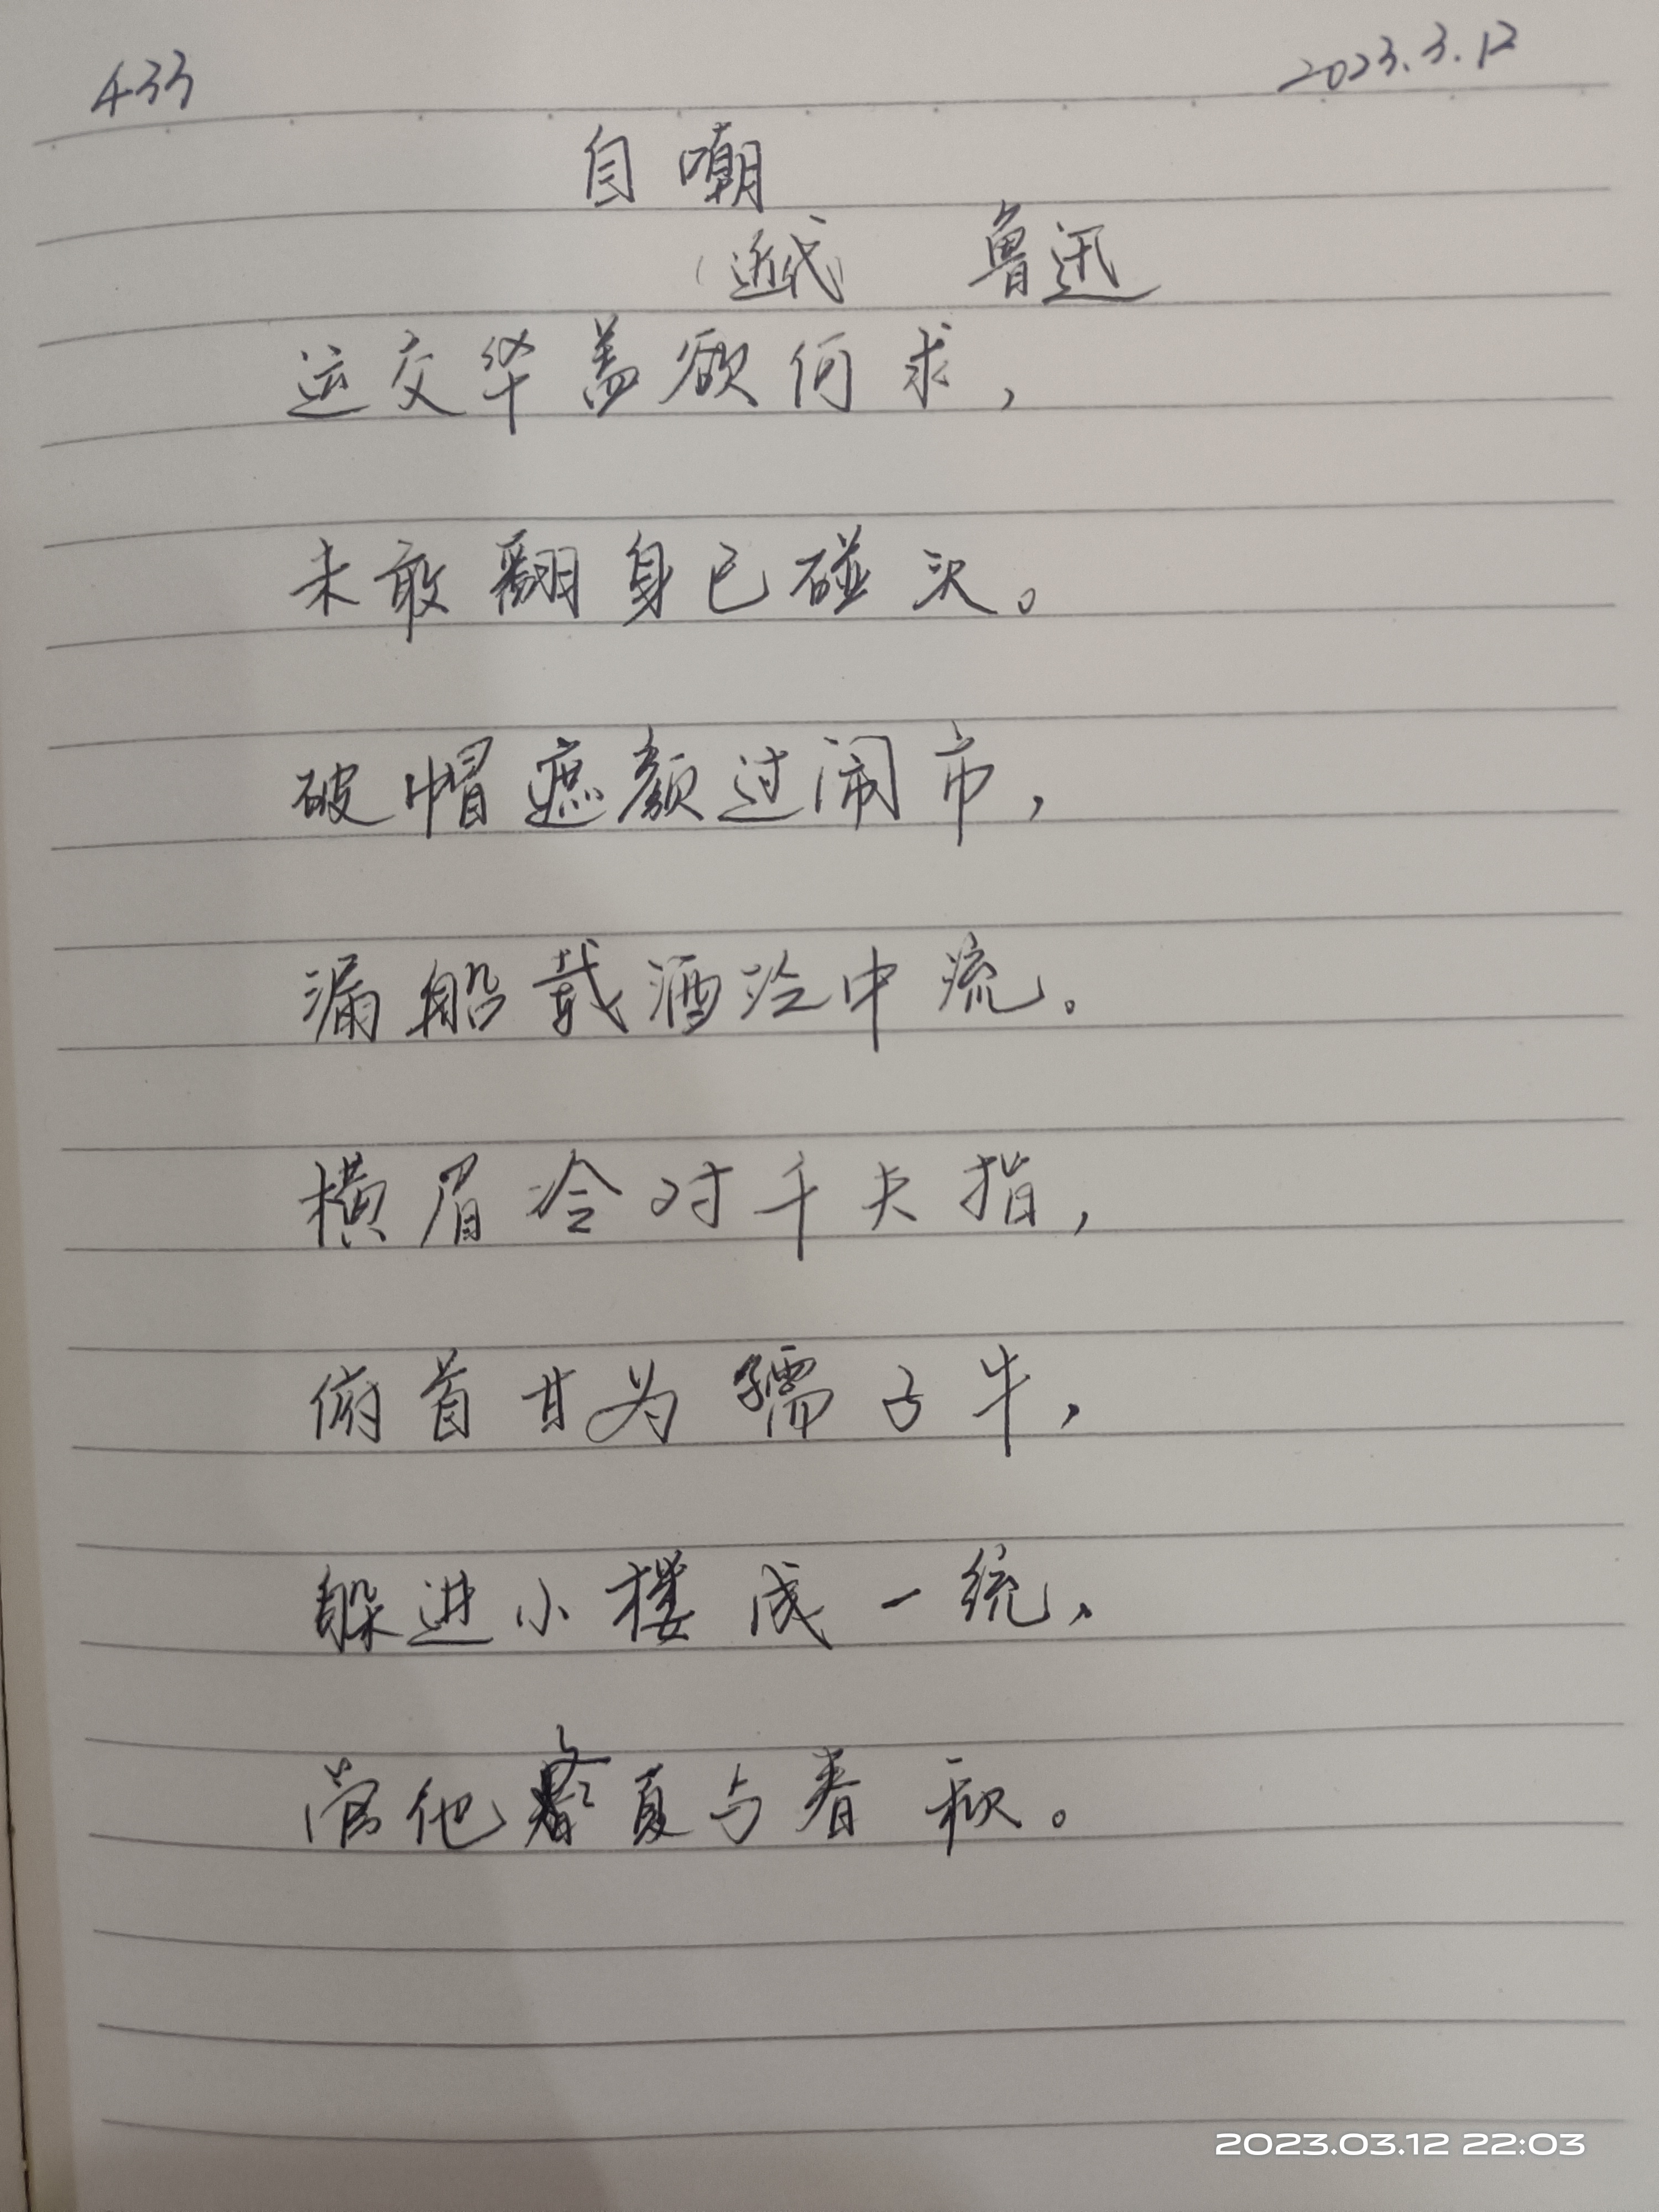 433
2023.3.12
自嘲
（近代） 鲁迅
运交华盖欲何求，
未敢翻身已碰次。
破帽遮颜过闹市，
漏船载酒泛中流。
横眉冷对千夫指，
俯首甘为孺子牛，
躲进小楼成一统，
管他冬夏与春秋。
2023.03.12 22:03